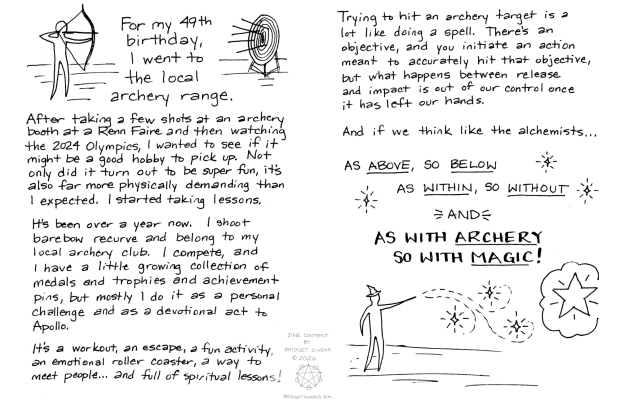 For my 49th
birthday,
I went to
the local
archery range.
After taking a few shots at an archery
booth at a Renn Faire and then watching
the 2024 Olympics, I wanted to see if it
might be a good hobby to pick up. Not
only did it turn out to be super fun, it's
also far more physically demanding than
I expected. I started taking lessons.
It's been over a year now. I shoot
barebow recurve and belong to my
local archery club. I compete, and
I have a little growing collection of
medals and trophies and achievement
pins, but mostly I do it as a personal
challenge and as a devotional act to
Apollo.
It's a workout, an escape, a fun activity,
an emotional roller coaster, a way to
meet people... and full of spiritual lessons!
ZINE CONTENT
BY
BRIDGET OWENS
© 2026
BRIDGETOWENS.COM
Trying to hit an archery target is a
lot like doing a spell. There's an
objective, and you initiate an action
meant to accurately hit that objective,
but what happens between release
and impact is out of our control once
it has left our hands.
And if we think like the alchemists...
AS ABOVE, SO BELOW
AS WITHIN, SO WITHOUT
AND
AS WITH ARCHERY
SO WITH MAGIC!